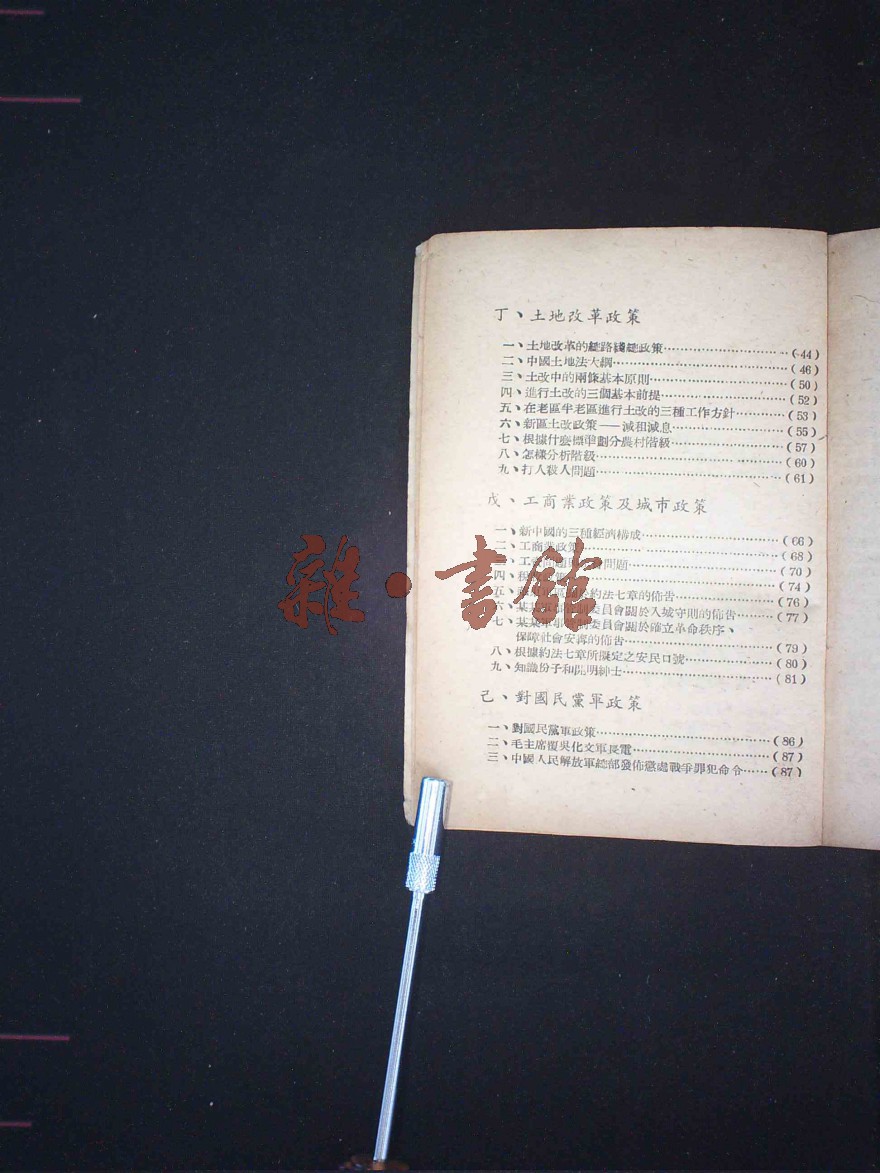 丁、土地改革政策
一、土地改革的總路綫總政策 (44)
二、中國土地法大綱 (46)
三、土改中的兩條基本原則 (50)
四、進行土改的三個基本前提 (52)
五、在老區半老區進行土改的三種工作方針 (53)
六、新區土改政策——減租減息 (55)
七、根據什麽標準劃分農村階級 (57)
八、怎樣分析階級 (60)
九、打人殺人問題 (61)
戊、工商業政策及城市政策
一、新中國的三種經濟構成 (66)
二、工商業政策 (68)
三、工 問題 (70)
四、 (74)
五、 約法七章的佈告 (76)
六、某某軍 委員會關於入城守則的佈告 (77)
七、某某軍 委員會關於確立革命秩序、
保障社會安寧的佈告 (79)
八、根據約法七章所擬定之安民口號 (80)
九、知識份子和開明紳士 (81)
己、對國民黨軍政策
一、對國民黨軍政策 (86)
二、毛主席覆吳化文軍長電 (87)
三、中國人民解放軍總部發佈懲處戰爭罪犯命令 (87)
雜·書館